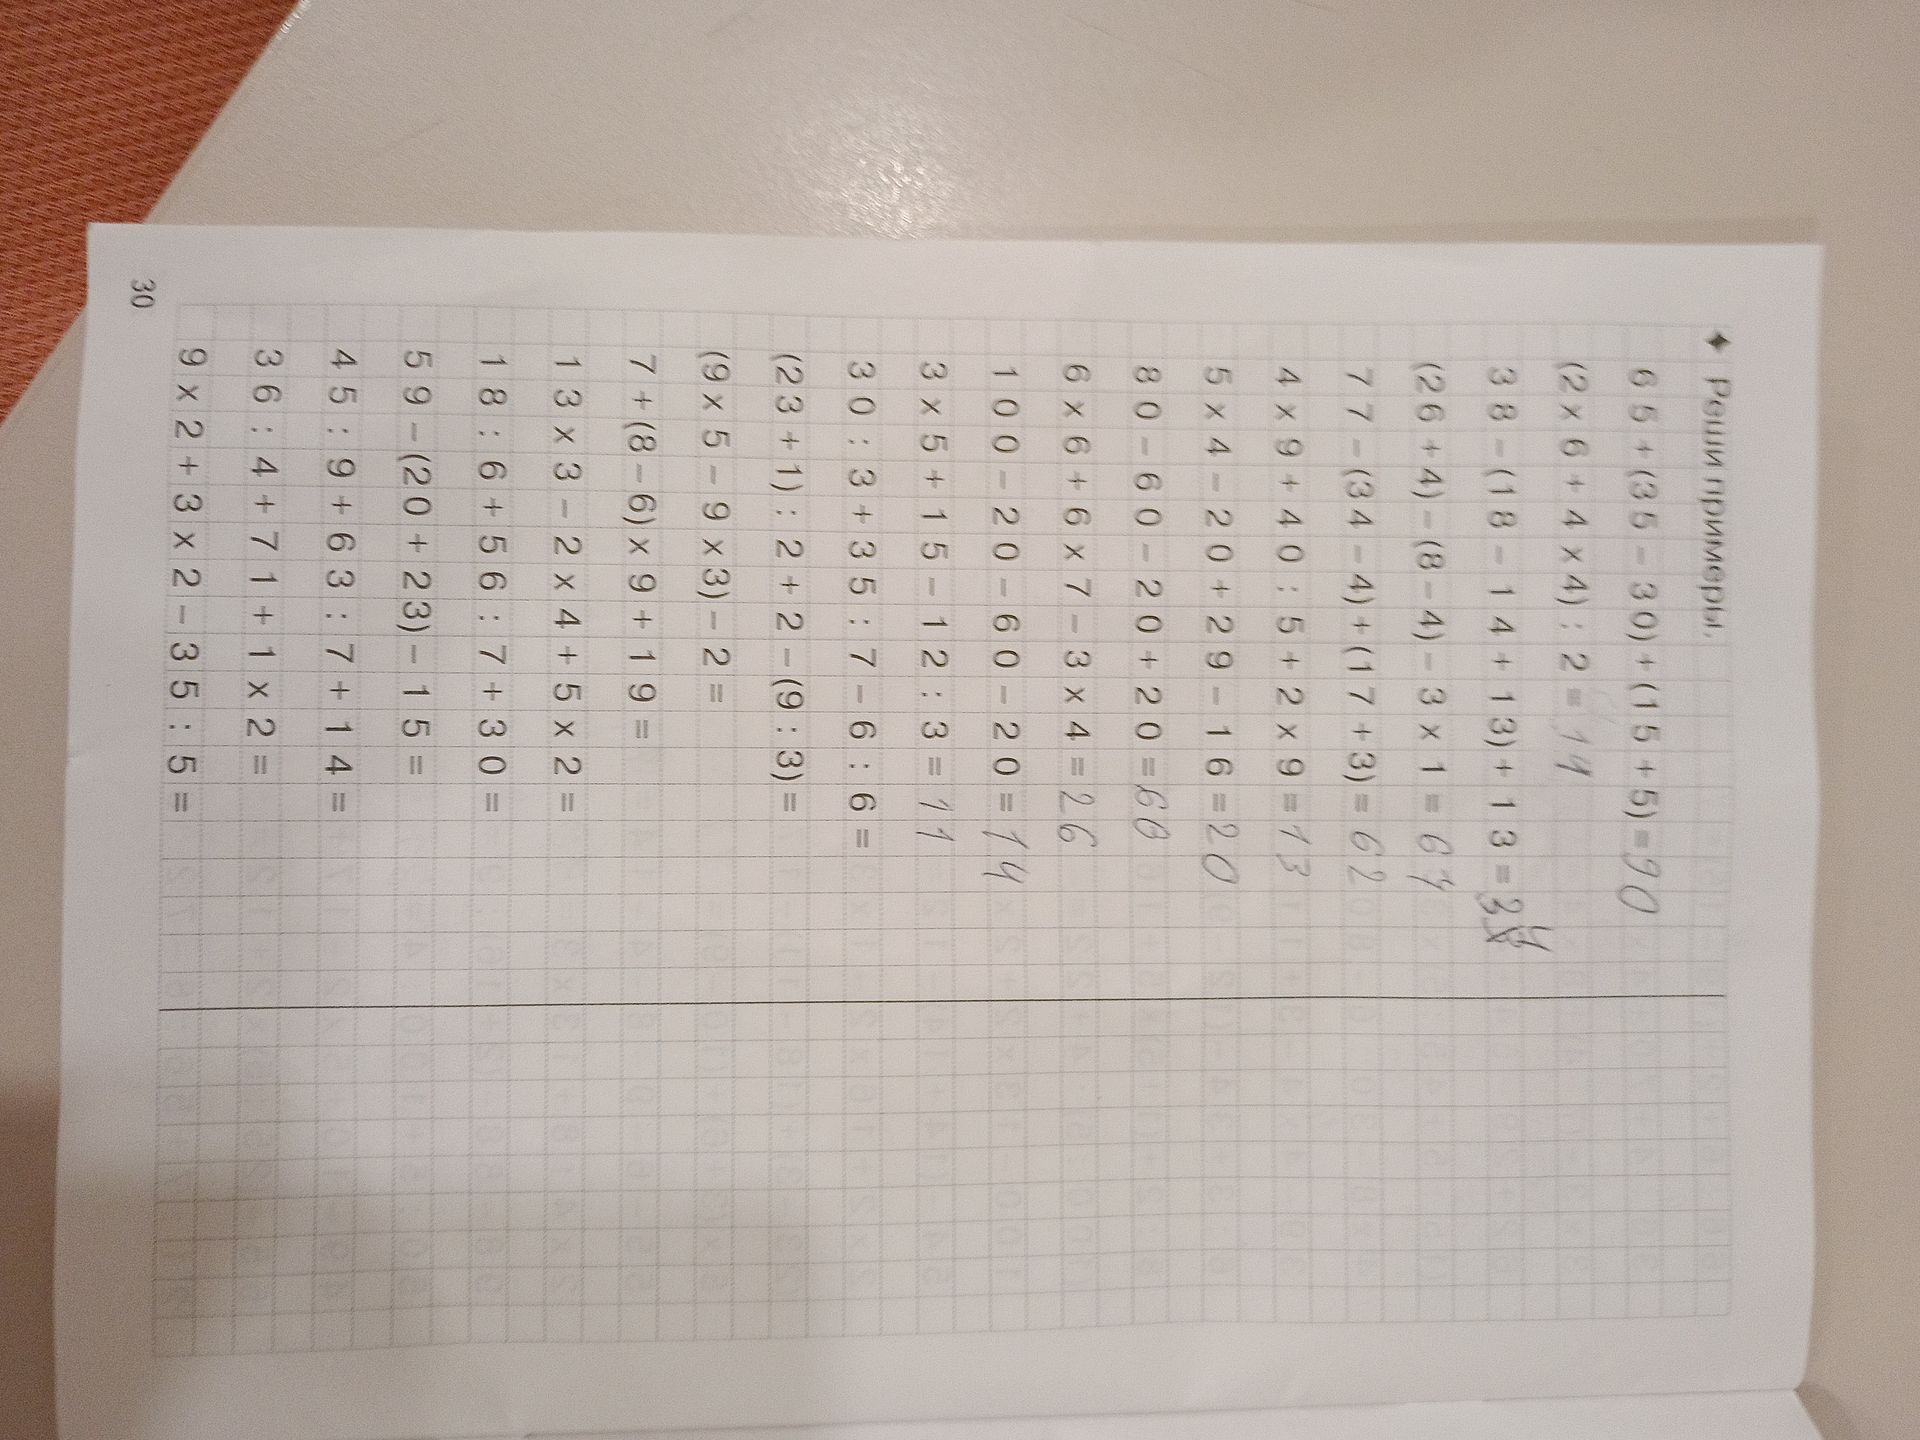 ✦ Реши примеры.
65+(35-30)+(15+5)=90
(2×6+4×4):2=14
38-(18-14+13)+13=34
(26+4)-(8-4)-3×1=
77-(34-4)+(17+3)=62
4×9+40:5+2×9=13
5×4-20+29-16=20
80-60-20+20=60
6×6+6×7-3×4=26
100-20-60-20=14
3×5+15-12:3=11
30:3+35:7-6:6=
(23+1):2+2-(9:3)=
(9×5-9×3)-2=
7+(8-6)×9+19=
13×3-2×4+5×2=
18:6+56:7+30=
59-(20+23)-15=
45:9+63:7+14=
36:4+71+1×2=
9×2+3×2-35:5=
30